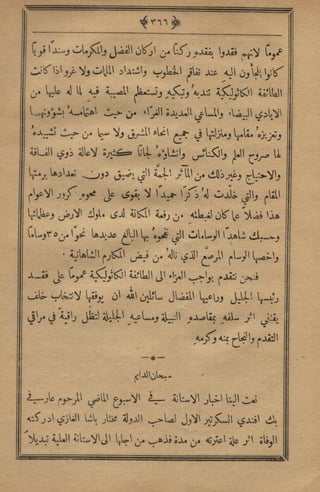 ﴿ ٣٦٦ ﴾
عمومًا لانهم فقدوا بفقدهِ ركنًا من اركان الفضل والمكرمات وسندًا قويًا
كانوا يلجأون اليهِ عند تفاقم الخطوب واشتداد الملمات ولا غرو اذا كانت
الطائفة الكاثوليكية تندبهُ وتبكيهِ وتستعظم المصيبة فيهِ لما لهُ عليها من
الايادي البيضاء والمساعي العديدة الغراء من حيث اهتمامهُ بشؤونها
وتعزيزه مقامها ومنزلتها في جميع انحاء المشرق ولا سيما من حيث تشييدهُ
لها صروح العلم والكنائس وانشاؤهُ لجانًا كثيرة لاعالة ذوي الفاقة
والاحتياج وغير ذلك من المآثر الجمة التي يضيق دون تعدادها برمتها
المقام والتي خلدت لهُ ذكرًا حميدًا لا يقوى على محوهِ كرور الاعوام
هذا فضلًا عما كان لغبطتهِ من رفعة المكانة لدى ملوك الارض وعظمائها
وحسبك شاهدًا الوسامات التي نفحوهُ بها البالغ عديدها نحوًا من ٣٥ وسامًا
واخصها الوسام المرصع الذي نالهُ من فيض المكارم الشاهانية ٠
فنحن نتقدم بواجب العزاء الى الطائفة الكاثوليكية عمومًا على فقد
رئيسها الجليل وراعيها المفضال سائلين الله ان يوفقها لانتخاب خلف
يقتفي اثر سلفهِ بمقاصدهِ النبيلة ومساعيهِ الجليلة لتظل راقية في مراقي
التقدم والنجاح بمنهِ وكرمهِ
—*—
سبحان الدايم
نعت الينا اخبار الاستانة في الاسبوع الماضي المرحوم عارف
بك افندي السكرتير الاول لصاحب الدولة مختار باشا الغازي ادركتهُ
الوفاة اثر علة اعترتهُ من مدة فذهب من اجلها الى الاستانة العلية تبديلًا